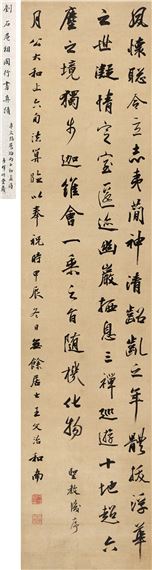 夙懷聰令立志夷簡神清齠齔之年體拔浮華
之世凝情定室匿迹幽巖栖息三禪巡遊十地超六
塵之境獨步迦維會一乘之旨隨機化物 聖教後序
月公大和上六旬法算臨以奉祝時甲辰冬日無餘居士王文治和南
劉石庵相國行書真蹟